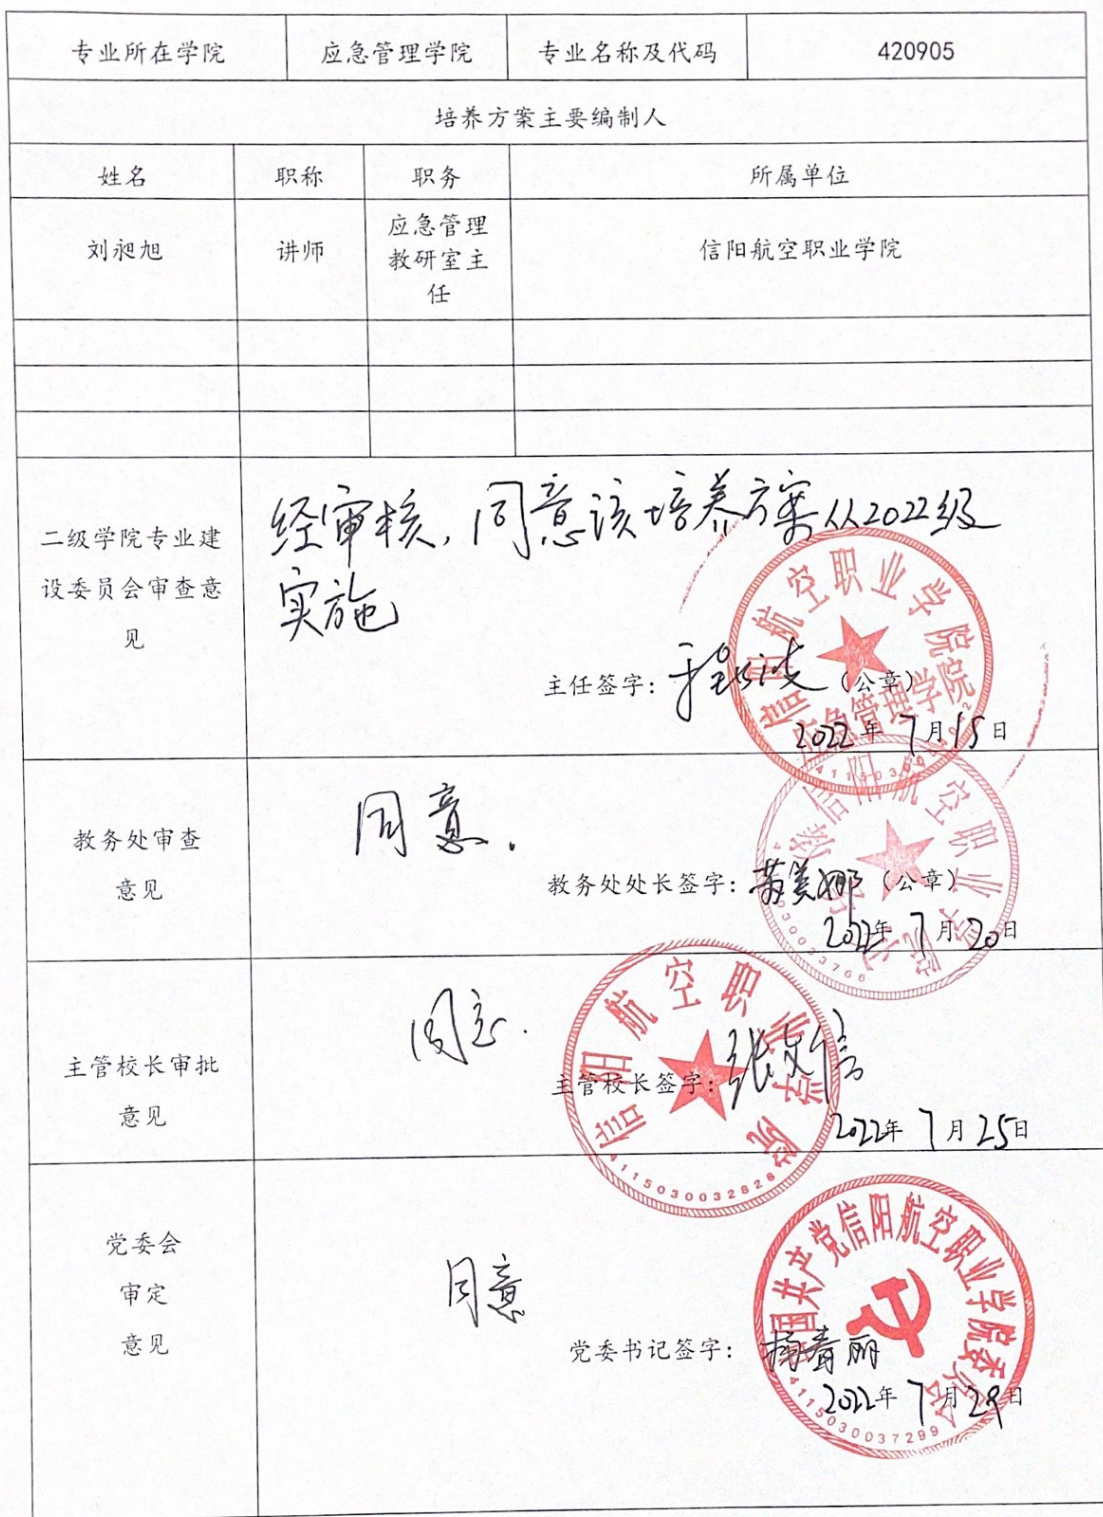 专业所在学院 应急管理学院 专业名称及代码 420905
培养方案主要编制人
姓名 职称 职务 所属单位
刘昶旭 讲师 应急管理 信阳航空职业学院
教研室主
任
二级学院专业建
设委员会审查意
见
经审核,同意该培养方案从2022级
实施
主任签字: (公章)
2022年 7月15日
信阳航空职业学院
应急管理学院
教务处审查
意见
同意.
教务处处长签字: (公章)
2022年 7月20日
信阳航空职业学院
主管校长审批
意见
同意.
主管校长签字:
2022年 7月25日
信阳航空职业学院
4115030032828
党委会
审定
意见
同意
党委书记签字: 杨青丽
2022年 7月29日
中国共产党信阳航空职业学院委员会
4115030037299